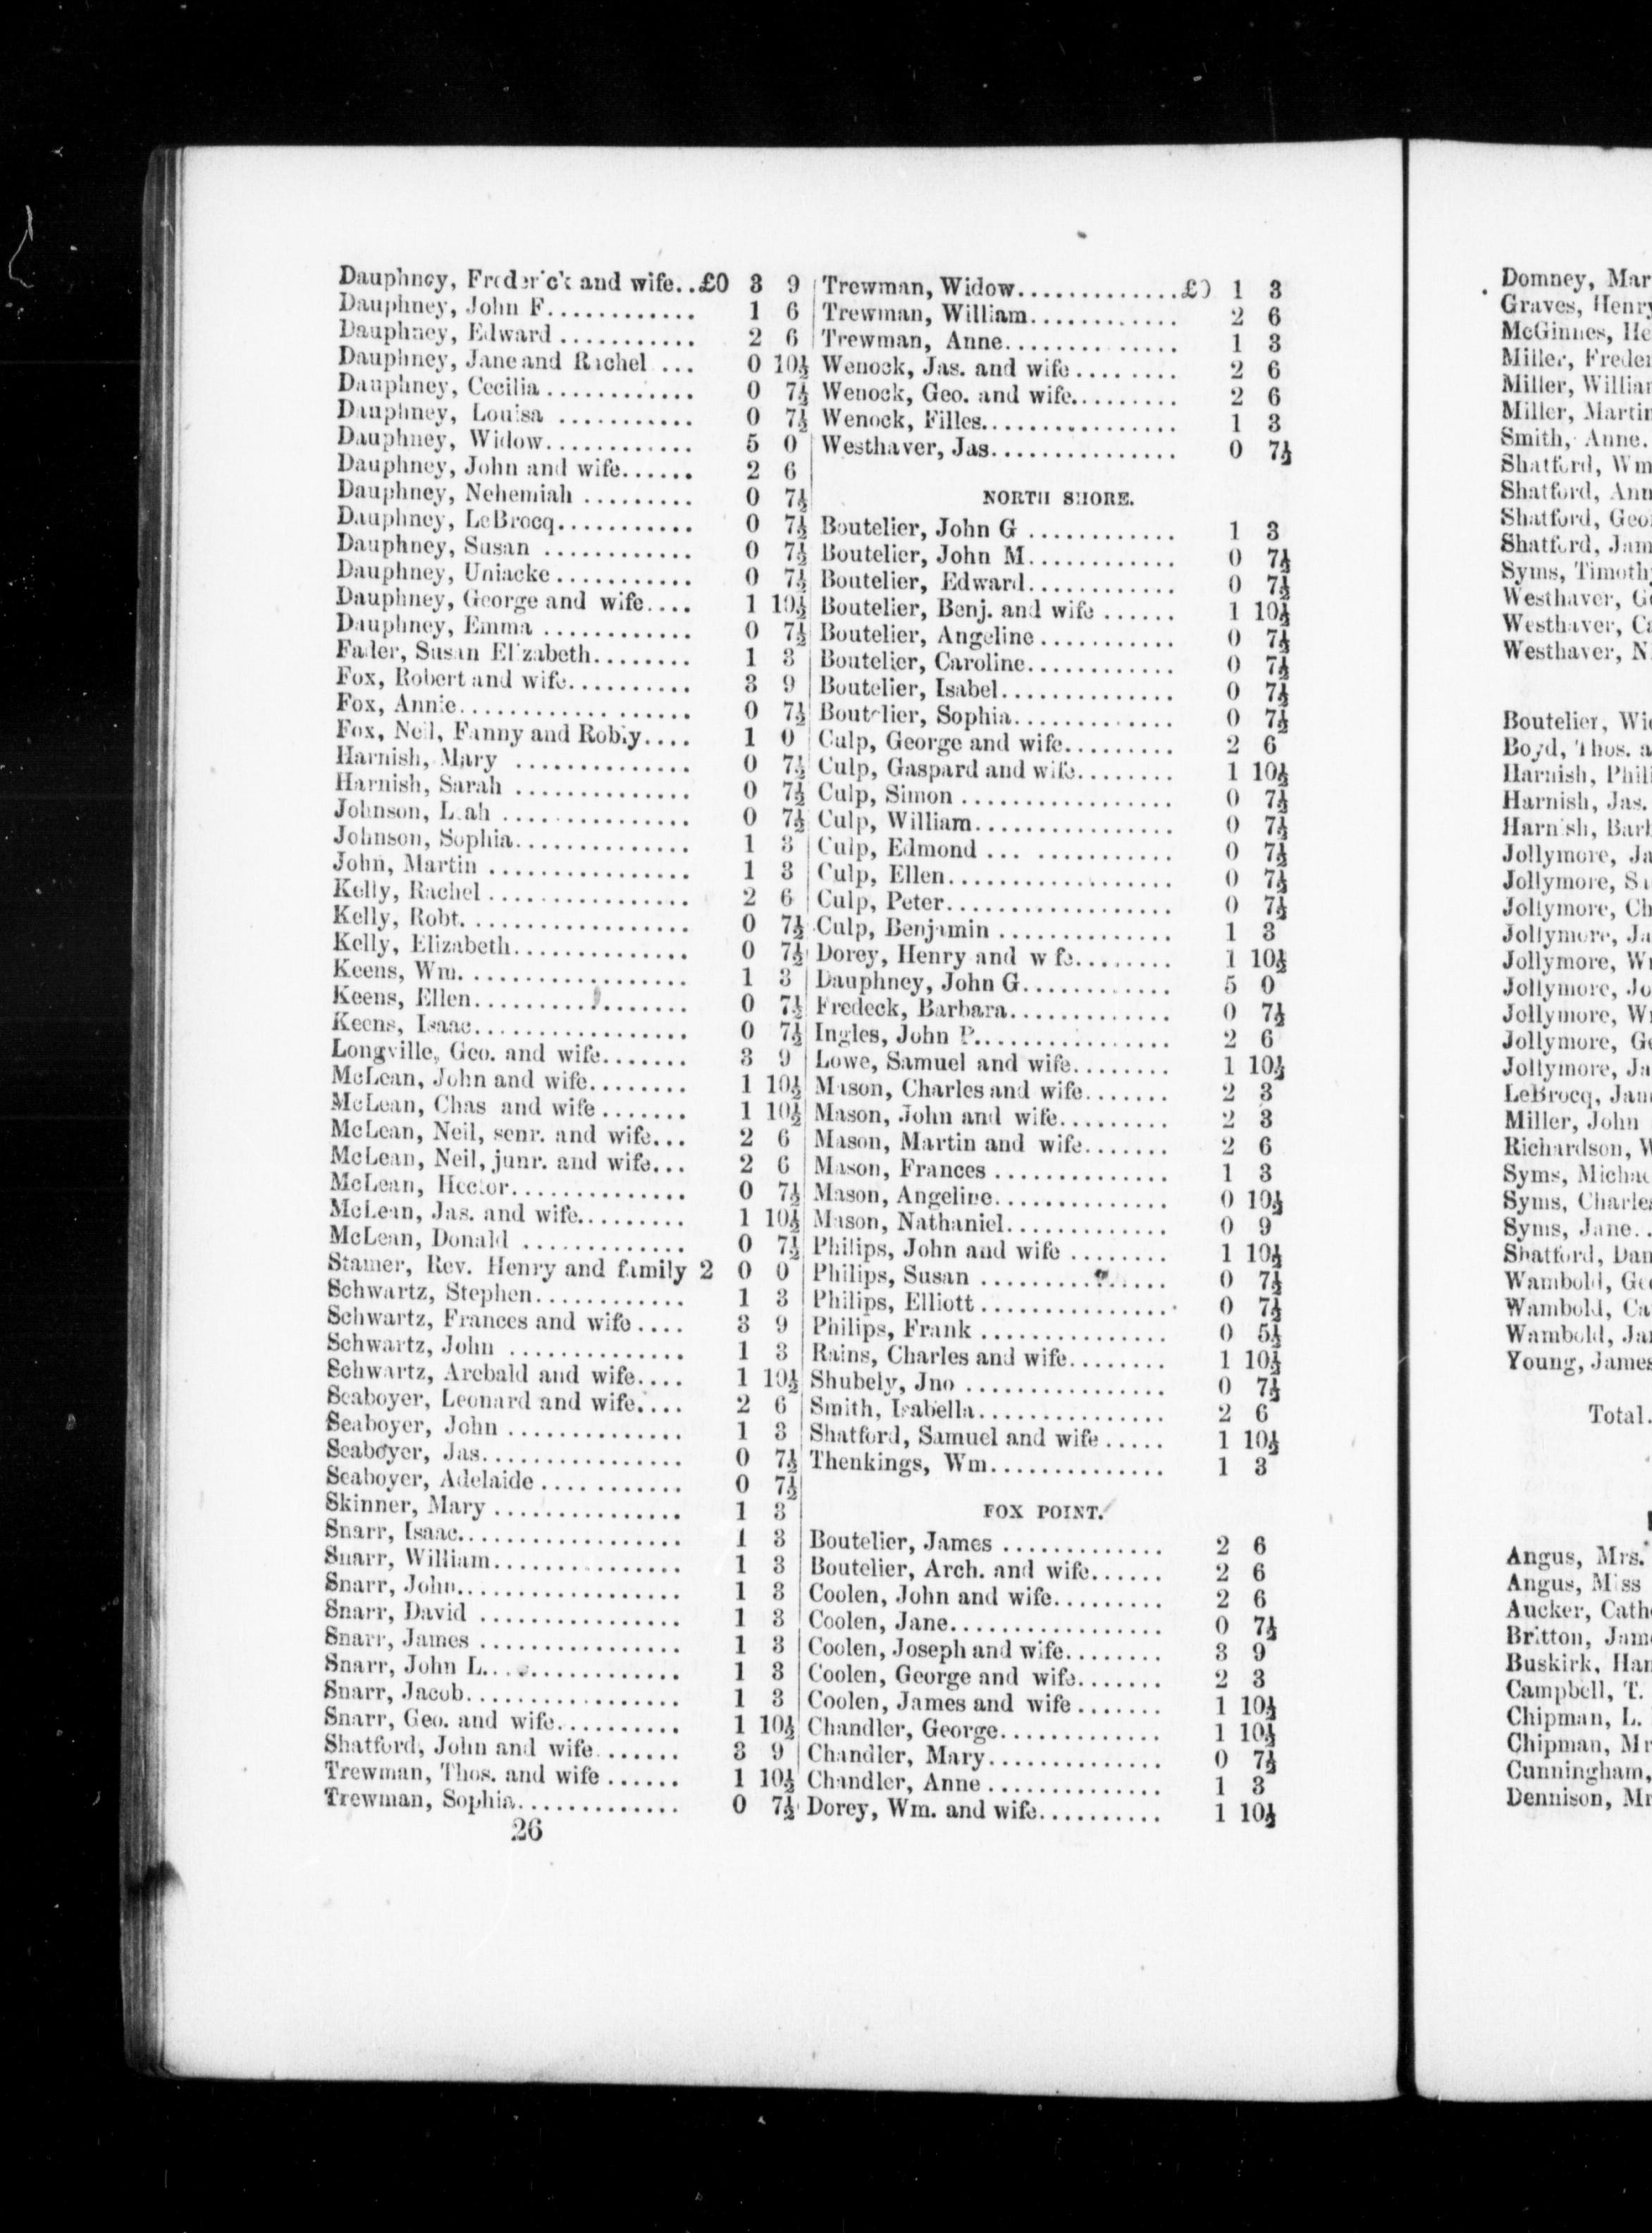 Dauphney, Frederick and wife..£0 3 9
Dauphney, John F............ 1 6
Dauphney, Edward ........... 2 6
Dauphney, Jane and Rachel ... 0 10½
Dauphney, Cecilia............. 0 7½
Dauphney, Louisa ........... 0 7½
Dauphney, Widow............. 5 0
Dauphney, John and wife...... 2 6
Dauphney, Nehemiah ......... 0 7½
Dauphney, LeBrocq........... 0 7½
Dauphney, Susan ............ 0 7½
Dauphney, Uniacke........... 0 7½
Dauphney, George and wife.... 1 10½
Dauphney, Emma ............ 0 7½
Fader, Susan Elizabeth........ 1 3
Fox, Robert and wife.......... 3 9
Fox, Annie.................. 0 7½
Fox, Neil, Fanny and Robiy.... 1 0
Harnish, Mary .............. 0 7½
Harnish, Sarah .............. 0 7½
Johnson, Leah ............... 0 7½
Johnson, Sophia.............. 1 3
John, Martin ................ 1 3
Kelly, Rachel................. 2 6
Kelly, Robt................... 0 7½
Kelly, Elizabeth.............. 0 7½
Keens, Wm.................. 1 3
Keens, Ellen................. 0 7½
Keens, Isaac................. 0 7½
Longville, Geo. and wife....... 3 9
McLean, John and wife........ 1 10½
McLean, Chas and wife....... 1 10½
McLean, Neil, senr. and wife... 2 6
McLean, Neil, junr. and wife... 2 6
McLean, Hector.............. 0 7½
McLean, Jas. and wife......... 1 10½
McLean, Donald ............. 0 7½
Stamer, Rev. Henry and family 2 0 0
Schwartz, Stephen............ 1 3
Schwartz, Frances and wife.... 3 9
Schwartz, John .............. 1 3
Schwartz, Arcbald and wife.... 1 10½
Seaboyer, Leonard and wife.... 2 6
Seaboyer, John .............. 1 3
Seaboyer, Jas................. 0 7½
Seaboyer, Adelaide............ 0 7½
Skinner, Mary ............... 1 3
Snarr, Isaac.................. 1 3
Snarr, William................ 1 3
Snarr, John.................. 1 3
Snarr, David ................ 1 3
Snarr, James ................ 1 3
Snarr, John L................ 1 3
Snarr, Jacob................. 1 3
Snarr, Geo. and wife.......... 1 10½
Shatford, John and wife....... 3 9
Trewman, Thos. and wife...... 1 10½
Trewman, Sophia............. 0 7½
26
Trewman, Widow..............£0 1 3
Trewman, William............ 2 6
Trewman, Anne.............. 1 3
Wenock, Jas. and wife........ 2 6
Wenock, Geo. and wife......... 2 6
Wenock, Filles................ 1 3
Westhaver, Jas............... 0 7½
NORTH SHORE.
Boutelier, John G ............ 1 3
Boutelier, John M............ 0 7½
Boutelier, Edward............ 0 7½
Boutelier, Benj. and wife ...... 1 10½
Boutelier, Angeline........... 0 7½
Boutelier, Caroline............ 0 7½
Boutelier, Isabel.............. 0 7½
Boutelier, Sophia............. 0 7½
Culp, George and wife......... 2 6
Culp, Gaspard and wife........ 1 10½
Culp, Simon ................. 0 7½
Culp, William................ 0 7½
Culp, Edmond ... ........... 0 7½
Culp, Ellen.................. 0 7½
Culp, Peter.................. 0 7½
Culp, Benjamin .............. 1 3
Dorey, Henry and wife........ 1 10½
Dauphney, John G............ 5 0
Fredeck, Barbara............. 0 7½
Ingles, John P................ 2 6
Lowe, Samuel and wife........ 1 10½
Mason, Charles and wife....... 2 3
Mason, John and wife......... 2 3
Mason, Martin and wife....... 2 6
Mason, Frances .............. 1 3
Mason, Angeline.............. 0 10½
Mason, Nathaniel............. 0 9
Philips, John and wife ........ 1 10½
Philips, Susan ............... 0 7½
Philips, Elliott................ 0 7½
Philips, Frank ............... 0 5½
Rains, Charles and wife........ 1 10½
Shubely, Jno ................ 0 7½
Smith, Isabella............... 2 6
Shatford, Samuel and wife..... 1 10½
Thenkings, Wm.............. 1 3
FOX POINT.
Boutelier, James ............. 2 6
Boutelier, Arch. and wife...... 2 6
Coolen, John and wife......... 2 6
Coolen, Jane................. 0 7½
Coolen, Joseph and wife........ 3 9
Coolen, George and wife....... 2 3
Coolen, James and wife....... 1 10½
Chandler, George............. 1 10½
Chandler, Mary.............. 0 7½
Chandler, Anne.............. 1 3
Dorey, Wm. and wife.......... 1 10½
Domney, Mar
Graves, Henry
McGinnes, He
Miller, Freder
Miller, William
Miller, Martin
Smith, Anne.
Shatford, Wm
Shatford, Ann
Shatford, Geo
Shatford, Jam
Syms, Timothy
Westhaver, Ge
Westhaver, Ca
Westhaver, N
Boutelier, Wid
Boyd, Thos. a
Harnish, Phili
Harnish, Jas.
Harnish, Barb
Jollymore, Ja
Jollymore, Sa
Jollymore, Ch
Jollymore, Ja
Jollymore, Wi
Jollymore, Jo
Jollymore, Wi
Jollymore, Ge
Jollymore, Ja
LeBrocq, Jan
Miller, John
Richardson, W
Syms, Michae
Syms, Charles
Syms, Jane..
Shatford, Dan
Wambold, Geo
Wambold, Ca
Wambold, Jam
Young, James
Total.
Angus, Mrs.
Angus, Miss
Aucker, Cathe
Britton, Jame
Buskirk, Han
Campbell, T.
Chipman, L.
Chipman, Mr
Cunningham,
Dennison, Mr